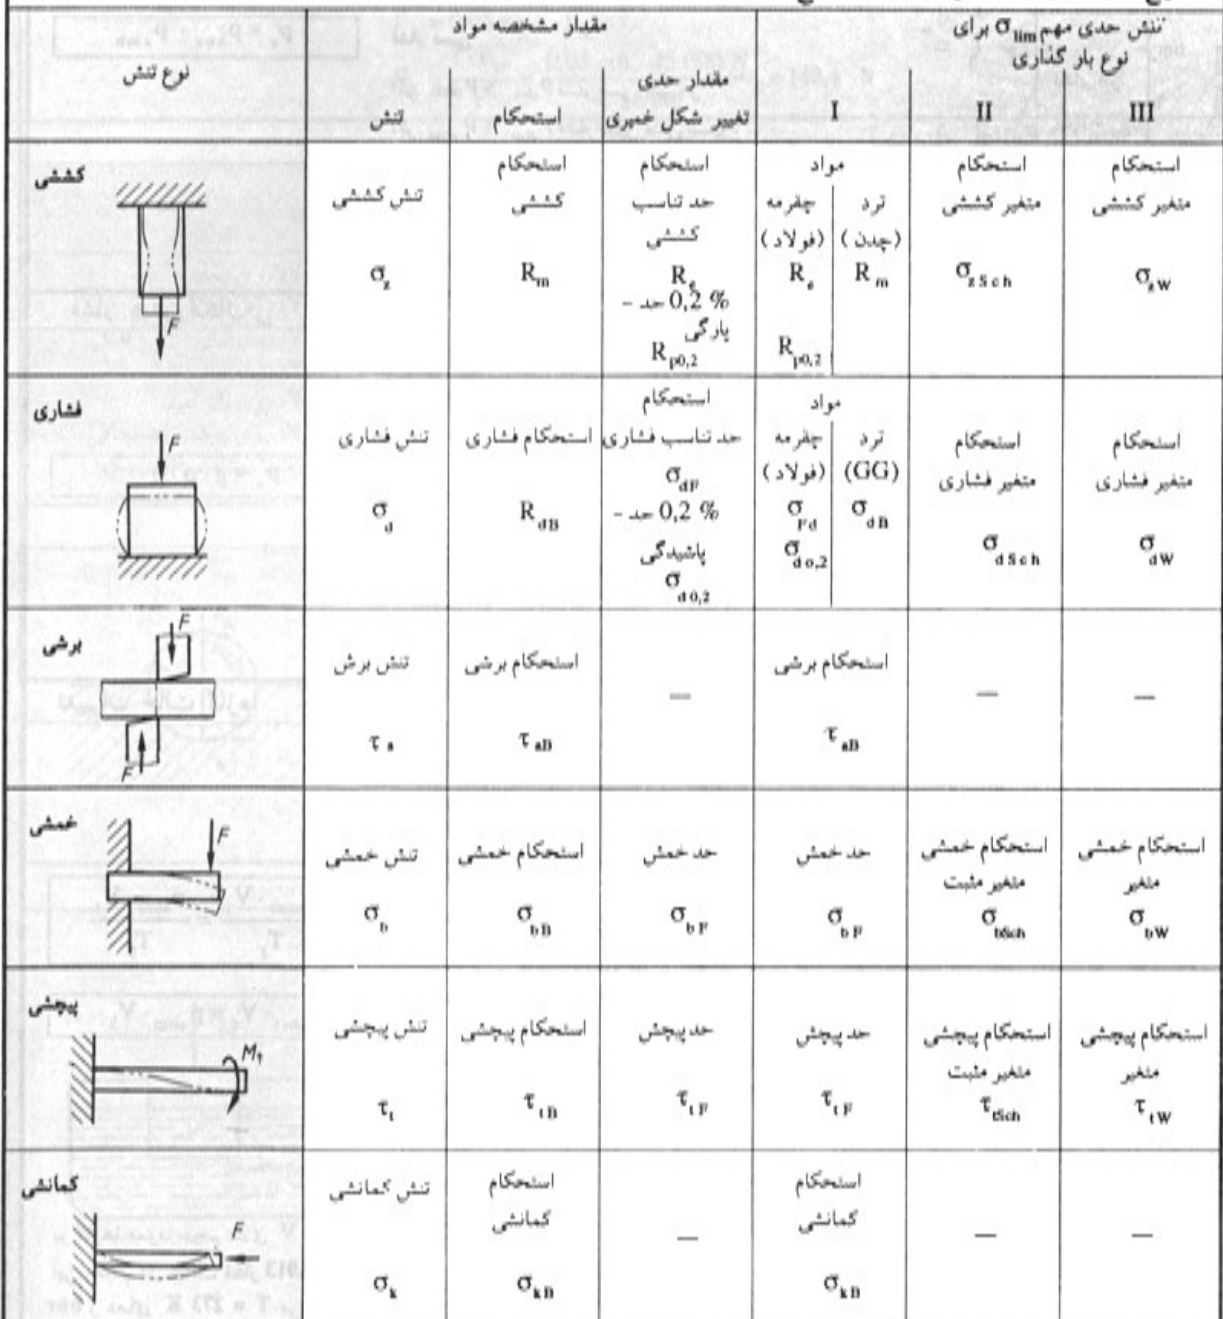 نوع تنش
مقدار مشخصه مواد
تنش
استحکام
مقدار حدی
تغییر شکل خمیری
تنش حدی مهم σlim برای
نوع بار گذاری
I
II
III
کششی
F
تنش کششی
σz
استحکام
کششی
Rm
استحکام
حد تناسب
کششی
Re
0,2 % حد –
پارگی
Rp0,2
مواد
چقرمه
(فولاد)
Re
Rp0,2
ترد
(چدن)
Rm
استحکام
متغیر کششی
σzSch
استحکام
متغیر کششی
σzW
فشاری
F
تنش فشاری
σd
استحکام فشاری
RdB
استحکام
حد تناسب فشاری
σdF
0,2 % حد –
پاشیدگی
σd0,2
مواد
چقرمه
(فولاد)
σFd
σdo,2
ترد
(GG)
σdB
استحکام
متغیر فشاری
σdSch
استحکام
متغیر فشاری
σdW
برشی
F
F
تنش برش
τa
استحکام برشی
τaB
—
استحکام برشی
τaB
—
—
خمشی
F
تنش خمشی
σb
استحکام خمشی
σbB
حد خمش
σbF
حد خمش
σbF
استحکام خمشی
متغیر مثبت
σbSch
استحکام خمشی
متغیر
σbW
پیچشی
Mt
تنش پیچشی
τt
استحکام پیچشی
τtB
حد پیچش
τtF
حد پیچش
τtF
استحکام پیچشی
متغیر مثبت
τtSch
استحکام پیچشی
متغیر
τtW
کمانشی
F
تنش کمانشی
σk
استحکام
کمانشی
σkB
—
استحکام
کمانشی
σkB
—
—